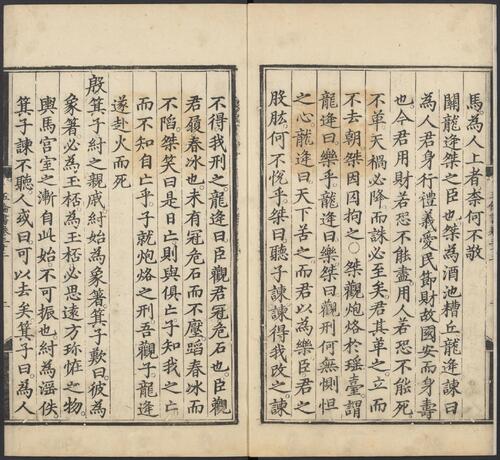 馬為人上者奈何不敬
關龍逢桀之臣也桀為酒池糟丘龍逢諫曰
為人君身行禮義愛民節財故國安而身壽
也今君用財若恐不能盡用人若恐不能死
不革天禍必降而誅必至矣君其革之立而
不去朝桀因囚拘之○桀觀炮烙於瑤臺謂
龍逢曰樂乎龍逢曰樂桀曰觀刑何無惻怛
之心龍逢曰天下苦之而君以為樂臣君之
股肱何不悅乎桀曰聽子諫諫得我改之諫
不得我刑之龍逢曰臣觀君冠危石也臣觀
君履春冰也未有冠危石而不壓蹈春冰而
不陷桀笑曰是日亡則與俱亡子知我之亡
而不知自亡乎子就炮烙之刑吾觀子龍逢
遂赴火而死
殷箕子紂之親戚紂始為象箸箕子歎曰彼為
象箸必為玉桮為玉桮必思遠方珍恠之物
輿馬宮室之漸自此始不可振也紂為滛佚
箕子諫不聽人或曰可以去矣箕子曰為人